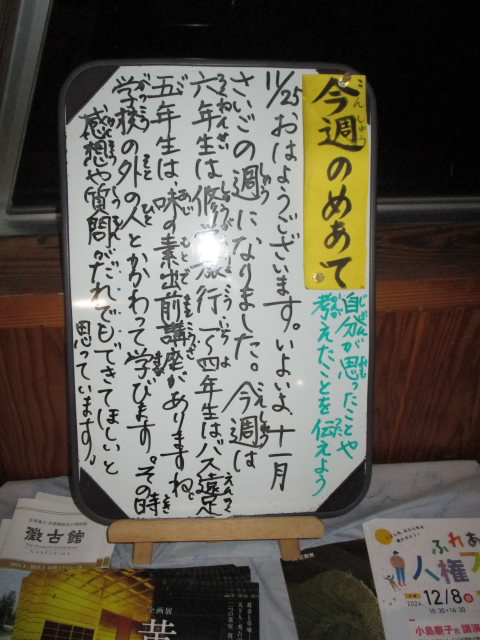 今週のめあて
こんしゅう
自分が思ったことや
考えたことを伝えよう
11/25 おはようございます。いよいよ、十一月
さいごの週になりました。今週は
六年生は修学旅行、一〜四年生はバス遠足
五年生は、味の素出前講座がありますね。
学校の外の人とかかわって学びます。その時
感想や質問がだれでもできてほしいと
思っています。
徴古館
企画展
黄
ふれあ
人権フ
2024 12/8
10:30▸16:30
小島慶子氏 講演